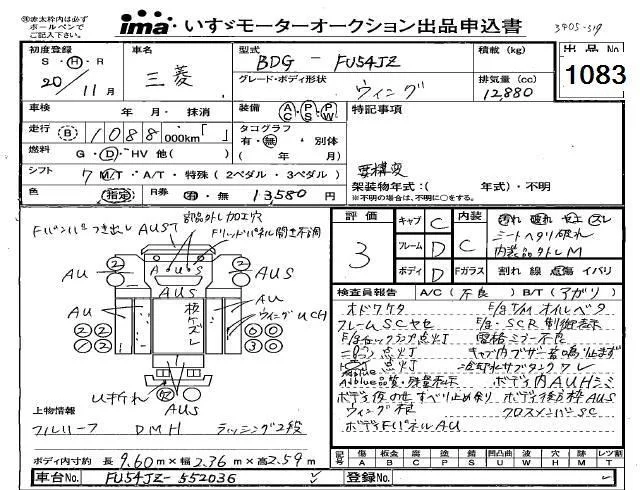 ㊟赤太枠内は必ず
ボールペンで
ご記入下さい。
ima いすゞモーターオークション出品申込書
3905-319
初度登録 車名 型式 積載(kg) 出品No
S・H・R 三菱 BDG - FU54JZ 1083
20/11月 グレード・ボディ形状 ウィング 排気量(cc) 12,880
車検 年 月・抹消 装備 AC・PS・PW 特記事項
走行 B 1088 000km「 」 タコグラフ 有・無・別体
燃料 G・D・HV 他( ) ( 年 月)
シフト 7 M/T・A/T・特殊(2ペダル・3ペダル) 要構変
架装物年式:( 年式)・不明
色 (指定) R券 有・無 13,580円 ※不明の場合は、不明に○をする。
評価 3 キャブ C 内装 C 汚れ 破れ コゲ スレ
シートヘタリ破れ
フレーム D 内装品外トレM
ボディ D Fガラス 割れ 線 点傷 イバリ
FバンパーつきだしAUST
部品外し加工穴
Fリッドパネル開き不調
AUS
AU AUS
AU 板ケズレ AU
ウィングUCH
U折れ AUS
検査員報告 A/C(不良) B/T(アガリ)
オドワケタ
フレームSCヤセ E/g・SCR制御表示
E/gチェックランプ点灯 電格ミラー不良
点灯 キャブ内ブザー音鳴り止まず
点灯
Adblue品質・残量表示 ボディ内AUHシミ
ボディ床のせすべり止め有り ボディ後枠AUS
ウィング根 クロスメンバーSC
ボディFパネルAU
上物情報
フルハーフ DMH ラッシング2段
ボディ内寸約 長9.60m×幅2.36m×高2.59m
記号 傷A 板金B 腐C 塗P 錆S 凹凸曲U 波W 穴H ムM レツ割T
車台No. FU54JZ-552036 登録No.